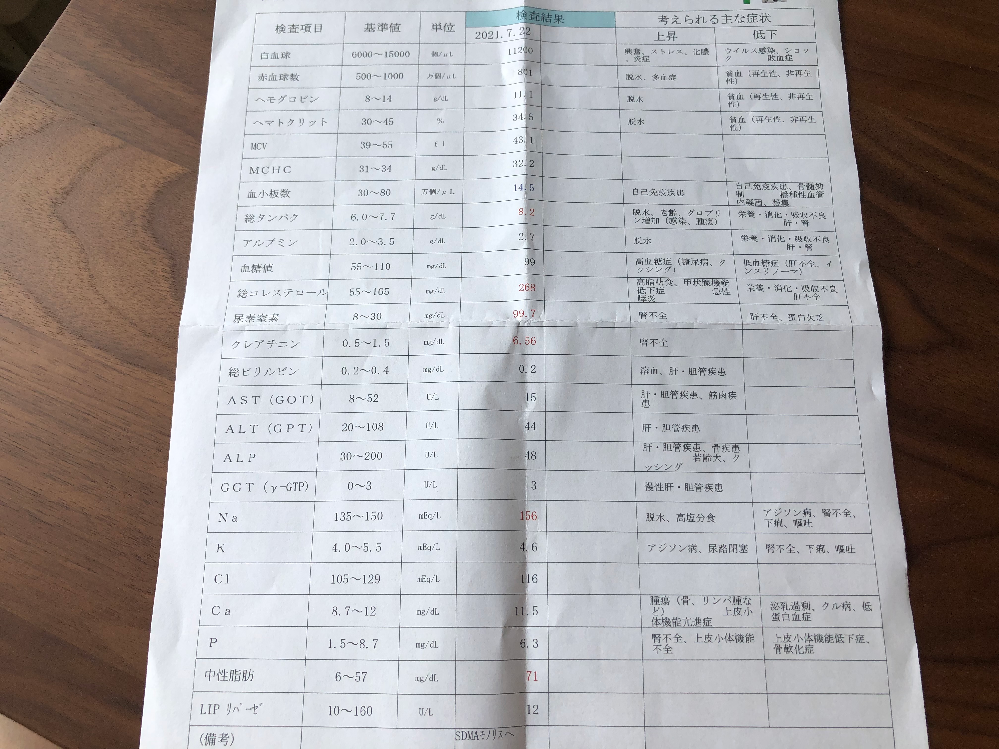 検査項目 基準値 単位 検査結果 考えられる主な症状
2021.7.22 上昇 低下
白血球 6000～15000 個/μL 11200 ストレス、化膿、炎症 ウイルス感染、ショック 敗血症
赤血球数 500～1000 万個/μL 801 脱水、多血症 貧血（再生性、非再生性）
ヘモグロビン 8～14 g/dL 11.1 脱水 貧血（再生性、非再生性）
ヘマトクリット 30～45 % 34.5 脱水 貧血（再生性、非再生性）
MCV 39～55 fl 43.1
MCHC 31～34 g/dL 32.2
血小板数 30～80 万個/μL 14.5 自己免疫疾患 自己免疫疾患、骨髄抑制 播種性血管内凝固
総タンパク 6.0～7.7 g/dL 8.2 脱水、グロブリン増加（感染、腫瘍） 栄養・消化・吸収不良 肝・腎
アルブミン 2.0～3.5 g/dL 2.7 脱水 栄養・消化・吸収不良 肝・腎
血糖値 55～110 mg/dL 99 高血糖症（糖尿病、クッシング） 低血糖症（肝不全、インスリノーマ）
総コレステロール 65～165 mg/dL 268 高脂肪食、甲状腺機能低下症 膵炎 栄養・消化・吸収不良 肝不全
尿素窒素 8～30 mg/dL 99.7 腎不全 肝不全、蛋白欠乏
クレアチニン 0.5～1.5 mg/dL 6.56 腎不全
総ビリルビン 0.2～0.4 mg/dL 0.2 溶血、肝・胆管疾患
AST（GOT） 8～52 U/L 15 肝・胆管疾患、筋肉疾患
ALT（GPT） 20～108 U/L 44 肝・胆管疾患
ALP 30～200 U/L 48 肝・胆管疾患、骨疾患 若齢犬、クッシング
GGT（γ-GTP） 0～3 U/L 3 慢性肝・胆管疾患
Na 135～150 mEq/L 156 脱水、高塩分食 アジソン病、腎不全、下痢、嘔吐
K 4.0～5.5 mEq/L 4.6 アジソン病、尿路閉塞 腎不全、下痢、嘔吐
Cl 105～129 mEq/L 116
Ca 8.7～12 mg/dL 11.5 腫瘍（骨、リンパ腫など） 上皮小体機能亢進症 泌乳蓬勃、クル病、低蛋白血症
P 1.5～8.7 mg/dL 6.3 腎不全、上皮小体機能不全 上皮小体機能低下症、骨軟化症
中性脂肪 6～57 mg/dL 71
LIP ﾘﾊﾟｰｾﾞ 10～160 U/L 12
（備考） SDMAモノリスへ